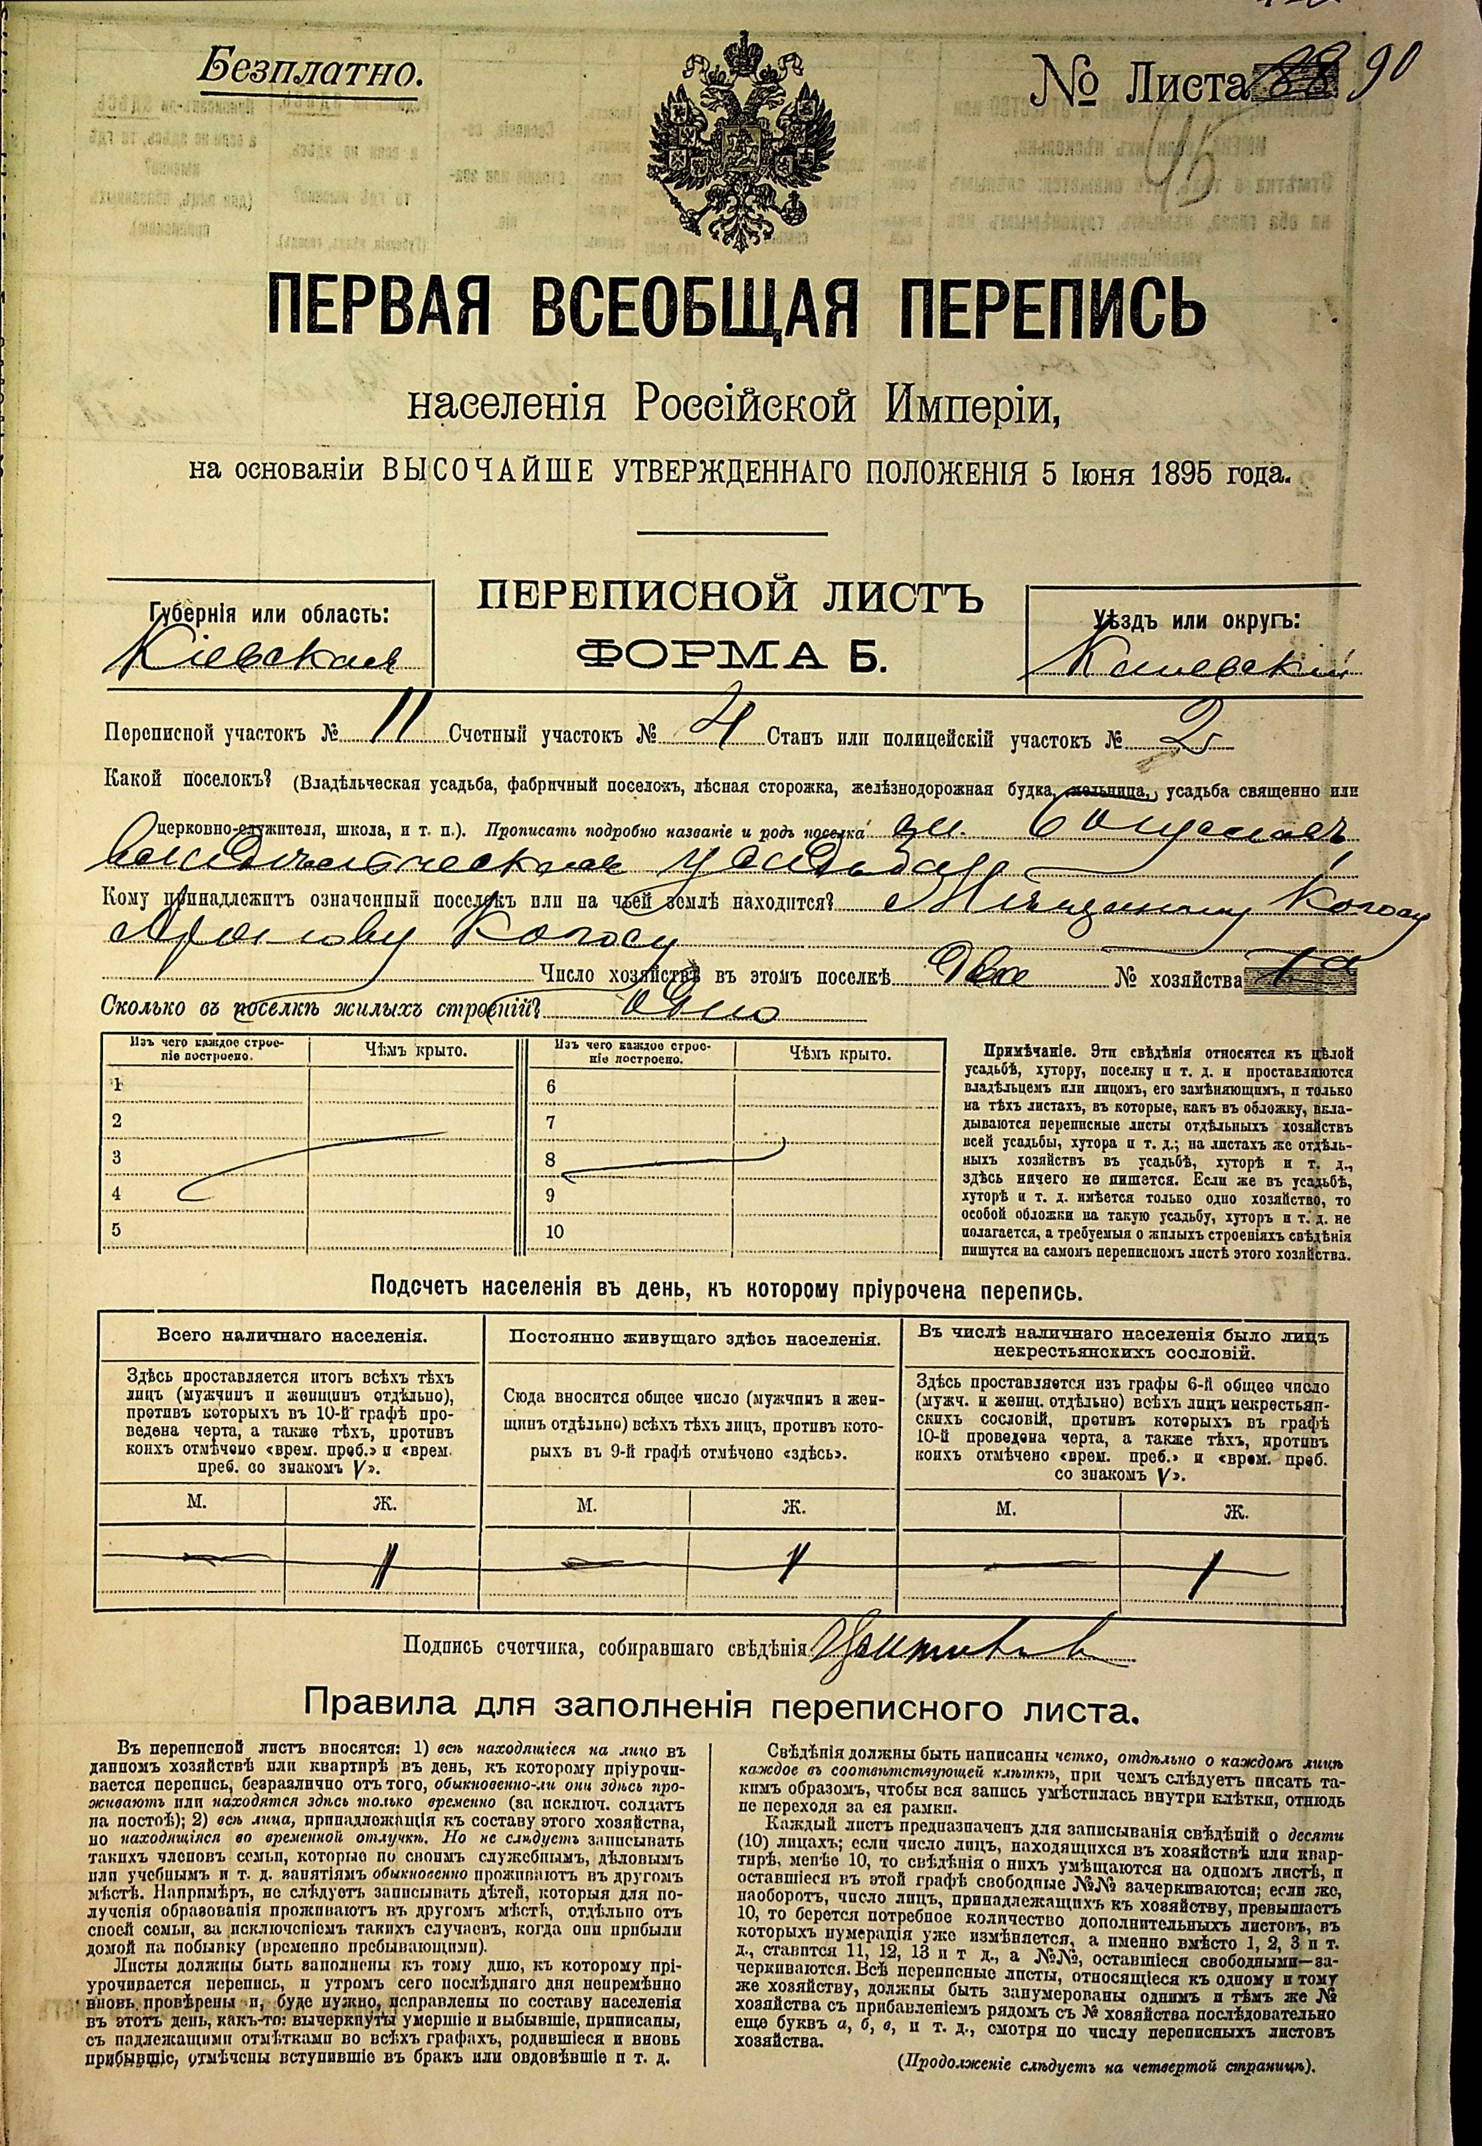 Безплатно.
№ Листа 90
45
ПЕРВАЯ ВСЕОБЩАЯ ПЕРЕПИСЬ
населенія Россійской Имперіи,
на основаніи ВЫСОЧАЙШЕ УТВЕРЖДЕННАГО ПОЛОЖЕНІЯ 5 Іюня 1895 года.
ПЕРЕПИСНОЙ ЛИСТЪ
ФОРМА Б.
Губернія или область:
Кіевская
Уѣздъ или округъ:
Каневскій
Переписной участокъ № 11 Счетный участокъ № 4 Станъ или полицейскій участокъ № 2
Какой поселокъ? (Владѣльческая усадьба, фабричный поселокъ, лѣсная сторожка, желѣзнодорожная будка, мельница, усадьба священно или
церковно-служителя, школа, и т. п.). Прописать подробно названіе и родъ поселка м.
усадьба
Кому принадлежитъ означенный поселокъ или на чьей землѣ находится? Мѣщанину Когосу
Когосу
Число хозяйствъ въ этомъ поселкѣ два № хозяйства 1а
Сколько въ поселкѣ жилыхъ строеній? одно
Изъ чего каждое строеніе построено. Чѣмъ крыто. Изъ чего каждое строеніе построено. Чѣмъ крыто.
1 6
2 7
3 8
4 9
5 10
Примѣчаніе. Эти свѣдѣнія относятся къ цѣлой
усадьбѣ, хутору, поселку и т. д. и проставляются
владѣльцемъ или лицомъ, его замѣняющимъ, и только
на тѣхъ листахъ, въ которые, какъ въ обложку, вкла-
дываются переписные листы отдѣльныхъ хозяйствъ
всей усадьбы, хутора и т. д.; на листахъ же отдѣль-
ныхъ хозяйствъ въ усадьбѣ, хуторѣ и т. д.,
здѣсь ничего не пишется. Если же въ усадьбѣ,
хуторѣ и т. д. имѣется только одно хозяйство, то
особой обложки на такую усадьбу, хуторъ и т. д. не
полагается, а требуемыя о жилыхъ строеніяхъ свѣдѣнія
пишутся на самомъ переписномъ листѣ этого хозяйства.
Подсчетъ населенія въ день, къ которому пріурочена перепись.
Всего наличнаго населенія.
Здѣсь проставляется итогъ всѣхъ тѣхъ
лицъ (мужчинъ и женщинъ отдѣльно),
противъ которыхъ въ 10-й графѣ про-
ведена черта, а также тѣхъ, противъ
коихъ отмѣчено «врем. преб.» и «врем.
преб. со знакомъ V».
Постоянно живущаго здѣсь населенія.
Сюда вносится общее число (мужчинъ и жен-
щинъ отдѣльно) всѣхъ тѣхъ лицъ, противъ кото-
рыхъ въ 9-й графѣ отмѣчено «здѣсь».
Въ числѣ наличнаго населенія было лицъ
некрестьянскихъ сословій.
Здѣсь проставляется изъ графы 6-й общее число
(мужч. и женщ. отдѣльно) всѣхъ лицъ некрестьян-
скихъ сословій, противъ которыхъ въ графѣ
10-й проведена черта, а также тѣхъ, противъ
коихъ отмѣчено «врем. преб.» и «врем. преб.
со знакомъ V».
М. Ж. М. Ж. М. Ж.
Подпись счетчика, собиравшаго свѣдѣнія
Правила для заполненія переписного листа.
Въ переписной листъ вносятся: 1) всѣ находящіеся на лицо въ
данномъ хозяйствѣ или квартирѣ въ день, къ которому пріурочи-
вается перепись, безразлично отъ того, обыкновенно-ли они здѣсь про-
живаютъ или находятся здѣсь только временно (за исключ. солдатъ
на постоѣ); 2) всѣ лица, принадлежащія къ составу этого хозяйства,
но находящіяся во временной отлучкѣ. Но не слѣдуетъ записывать
такихъ членовъ семьи, которые по своимъ служебнымъ, дѣловымъ
или учебнымъ и т. д. занятіямъ обыкновенно проживаютъ въ другомъ
мѣстѣ. Напримѣръ, не слѣдуетъ записывать дѣтей, которыя для по-
лученія образованія проживаютъ въ другомъ мѣстѣ, отдѣльно отъ
своей семьи, за исключеніемъ такихъ случаевъ, когда они прибыли
домой на побывку (временно пребывающими).
Листы должны быть заполнены къ тому дню, къ которому прі-
урочивается перепись, и утромъ сего послѣдняго дня непремѣнно
вновь провѣрены и, буде нужно, исправлены по составу населенія
въ этотъ день, какъ-то: вычеркнуты умершіе и выбывшіе, приписаны,
съ надлежащими отмѣтками во всѣхъ графахъ, родившіеся и вновь
прибывшіе, отмѣчены вступившіе въ бракъ или овдовѣвшіе и т. д.
Свѣдѣнія должны быть написаны четко, отдѣльно о каждомъ лицѣ
каждое въ соотвѣтствующей клѣткѣ, при чемъ слѣдуетъ писать та-
кимъ образомъ, чтобы вся запись умѣстилась внутри клѣтки, отнюдь
не переходя за ея рамки.
Каждый листъ предназначенъ для записыванія свѣдѣній о десяти
(10) лицахъ; если число лицъ, находящихся въ хозяйствѣ или квар-
тирѣ, менѣе 10, то свѣдѣнія о нихъ умѣщаются на одномъ листѣ, и
оставшіеся въ этой графѣ свободные №№ зачеркиваются; если же,
наоборотъ, число лицъ, принадлежащихъ къ хозяйству, превышаетъ
10, то берется потребное количество дополнительныхъ листовъ, въ
которыхъ нумерація уже измѣняется, а именно вмѣсто 1, 2, 3 и т.
д., ставится 11, 12, 13 и т д., а №№, оставшіеся свободными—за-
черкиваются. Всѣ переписные листы, относящіеся къ одному и тому
же хозяйству, должны быть занумерованы однимъ и тѣмъ же №
хозяйства съ прибавленіемъ рядомъ съ № хозяйства послѣдовательно
еще буквъ а, б, в, и т. д., смотря по числу переписныхъ листовъ
хозяйства.
(Продолженіе слѣдуетъ на четвертой страницѣ).